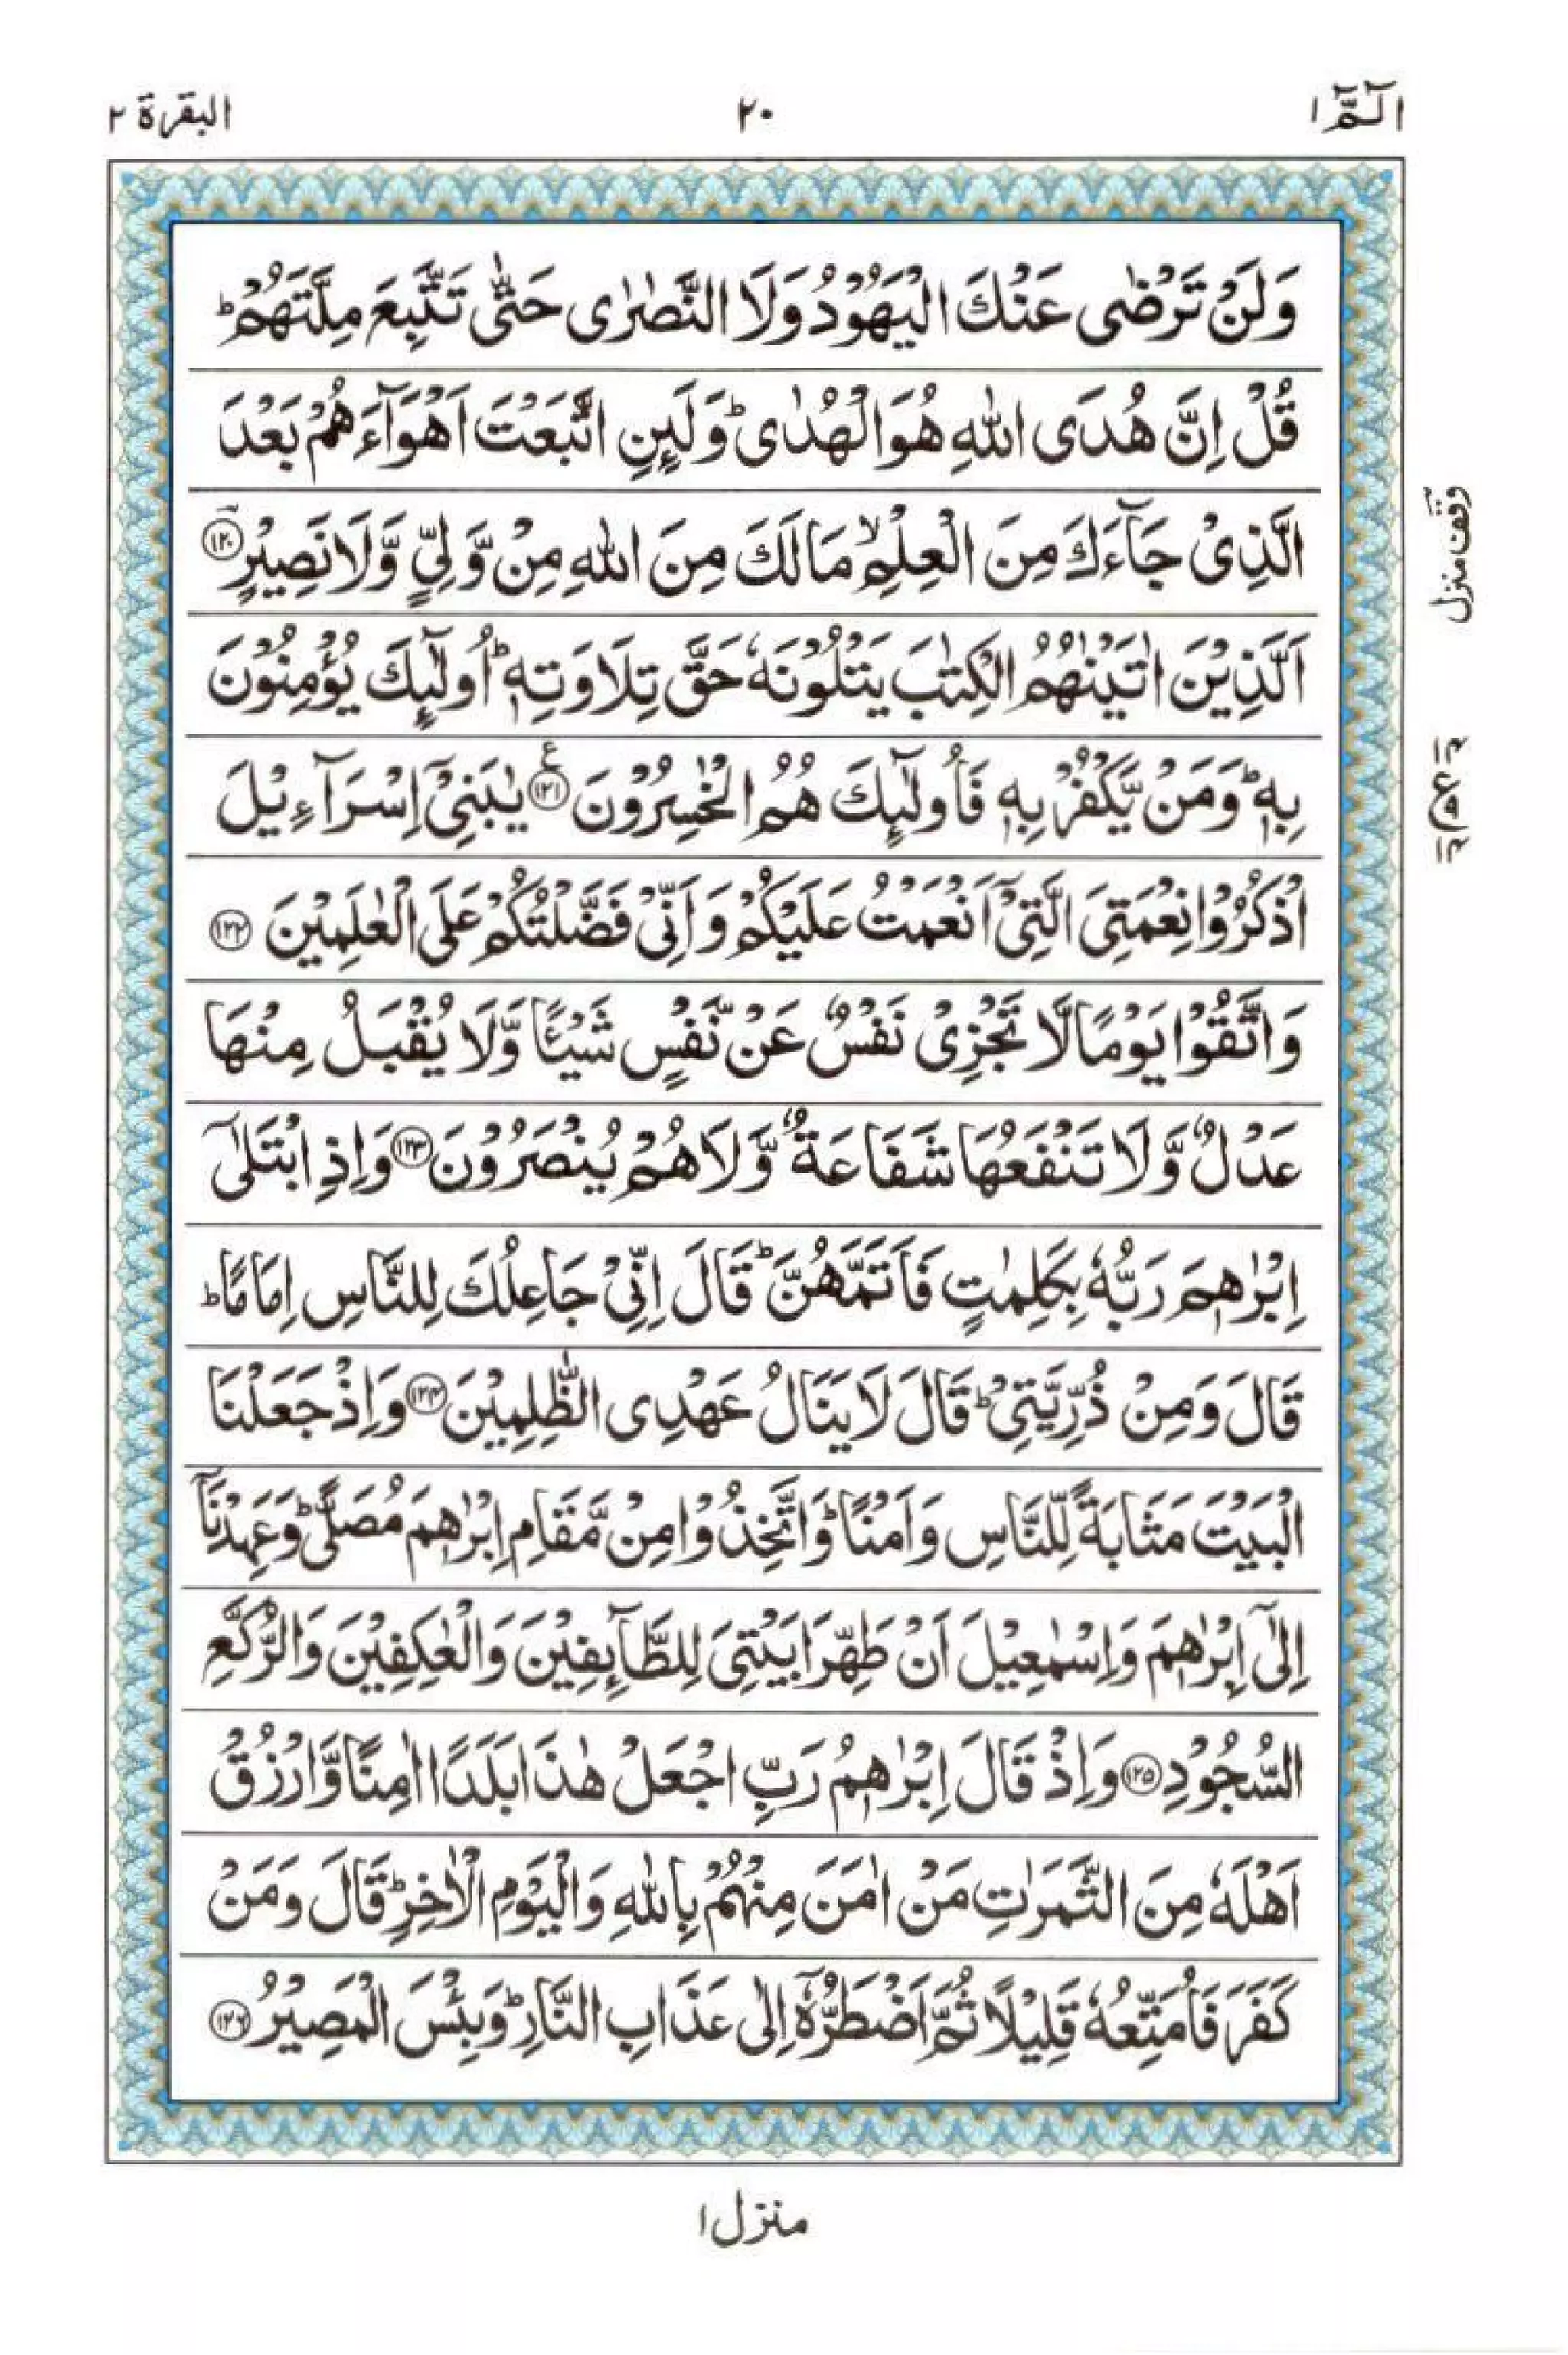 الٓمّٓ ١
٢٠
البقرة ٢
وَلَنْ تَرْضٰى عَنْكَ الْيَهُوْدُ وَلَا النَّصٰرٰى حَتّٰى تَتَّبِعَ مِلَّتَهُمْ ؕ
قُلْ اِنَّ هُدَى اللّٰهِ هُوَ الْهُدٰى ؕ وَلَئِنِ اتَّبَعْتَ اَهْوَآءَهُمْ بَعْدَ
الَّذِىْ جَآءَكَ مِنَ الْعِلْمِ ۙ مَا لَكَ مِنَ اللّٰهِ مِنْ وَّلِىٍّ وَّلَا نَصِيْرٍ ﴿١٢٠﴾
وقف منزل
اَلَّذِيْنَ اٰتَيْنٰهُمُ الْكِتٰبَ يَتْلُوْنَهٗ حَقَّ تِلَاوَتِهٖ ؕ اُولٰٓئِكَ يُؤْمِنُوْنَ
بِهٖ ؕ وَمَنْ يَّكْفُرْ بِهٖ فَاُولٰٓئِكَ هُمُ الْخٰسِرُوْنَ ﴿١٢١﴾ ع يٰبَنِىْۤ اِسْرَآءِيْلَ
اذْكُرُوْا نِعْمَتِىَ الَّتِىْۤ اَنْعَمْتُ عَلَيْكُمْ وَاَنِّىْ فَضَّلْتُكُمْ عَلَى الْعٰلَمِيْنَ ﴿١٢٢﴾
وَاتَّقُوْا يَوْمًا لَّا تَجْزِىْ نَفْسٌ عَنْ نَّفْسٍ شَيْـًٔا وَّلَا يُقْبَلُ مِنْهَا
عَدْلٌ وَّلَا تَنْفَعُهَا شَفَاعَةٌ وَّلَا هُمْ يُنْصَرُوْنَ ﴿١٢٣﴾ وَاِذِ ابْتَلٰٓى
اِبْرٰهٖمَ رَبُّهٗ بِكَلِمٰتٍ فَاَتَمَّهُنَّ ؕ قَالَ اِنِّىْ جَاعِلُكَ لِلنَّاسِ اِمَامًا ؕ
قَالَ وَمِنْ ذُرِّيَّتِىْ ؕ قَالَ لَا يَنَالُ عَهْدِى الظّٰلِمِيْنَ ﴿١٢٤﴾ وَاِذْ جَعَلْنَا
الْبَيْتَ مَثَابَةً لِّلنَّاسِ وَاَمْنًا ؕ وَاتَّخِذُوْا مِنْ مَّقَامِ اِبْرٰهٖمَ مُصَلًّى ؕ وَعَهِدْنَاۤ
اِلٰٓى اِبْرٰهٖمَ وَاِسْمٰعِيْلَ اَنْ طَهِّرَا بَيْتِىَ لِلطَّآئِفِيْنَ وَالْعٰكِفِيْنَ وَالرُّكَّعِ
السُّجُوْدِ ﴿١٢٥﴾ وَاِذْ قَالَ اِبْرٰهٖمُ رَبِّ اجْعَلْ هٰذَا بَلَدًا اٰمِنًا وَّارْزُقْ
اَهْلَهٗ مِنَ الثَّمَرٰتِ مَنْ اٰمَنَ مِنْهُمْ بِاللّٰهِ وَالْيَوْمِ الْاٰخِرِ ؕ قَالَ وَمَنْ
كَفَرَ فَاُمَتِّعُهٗ قَلِيْلًا ثُمَّ اَضْطَرُّهٗۤ اِلٰى عَذَابِ النَّارِ ؕ وَبِئْسَ الْمَصِيْرُ ﴿١٢٦﴾
منزل ١